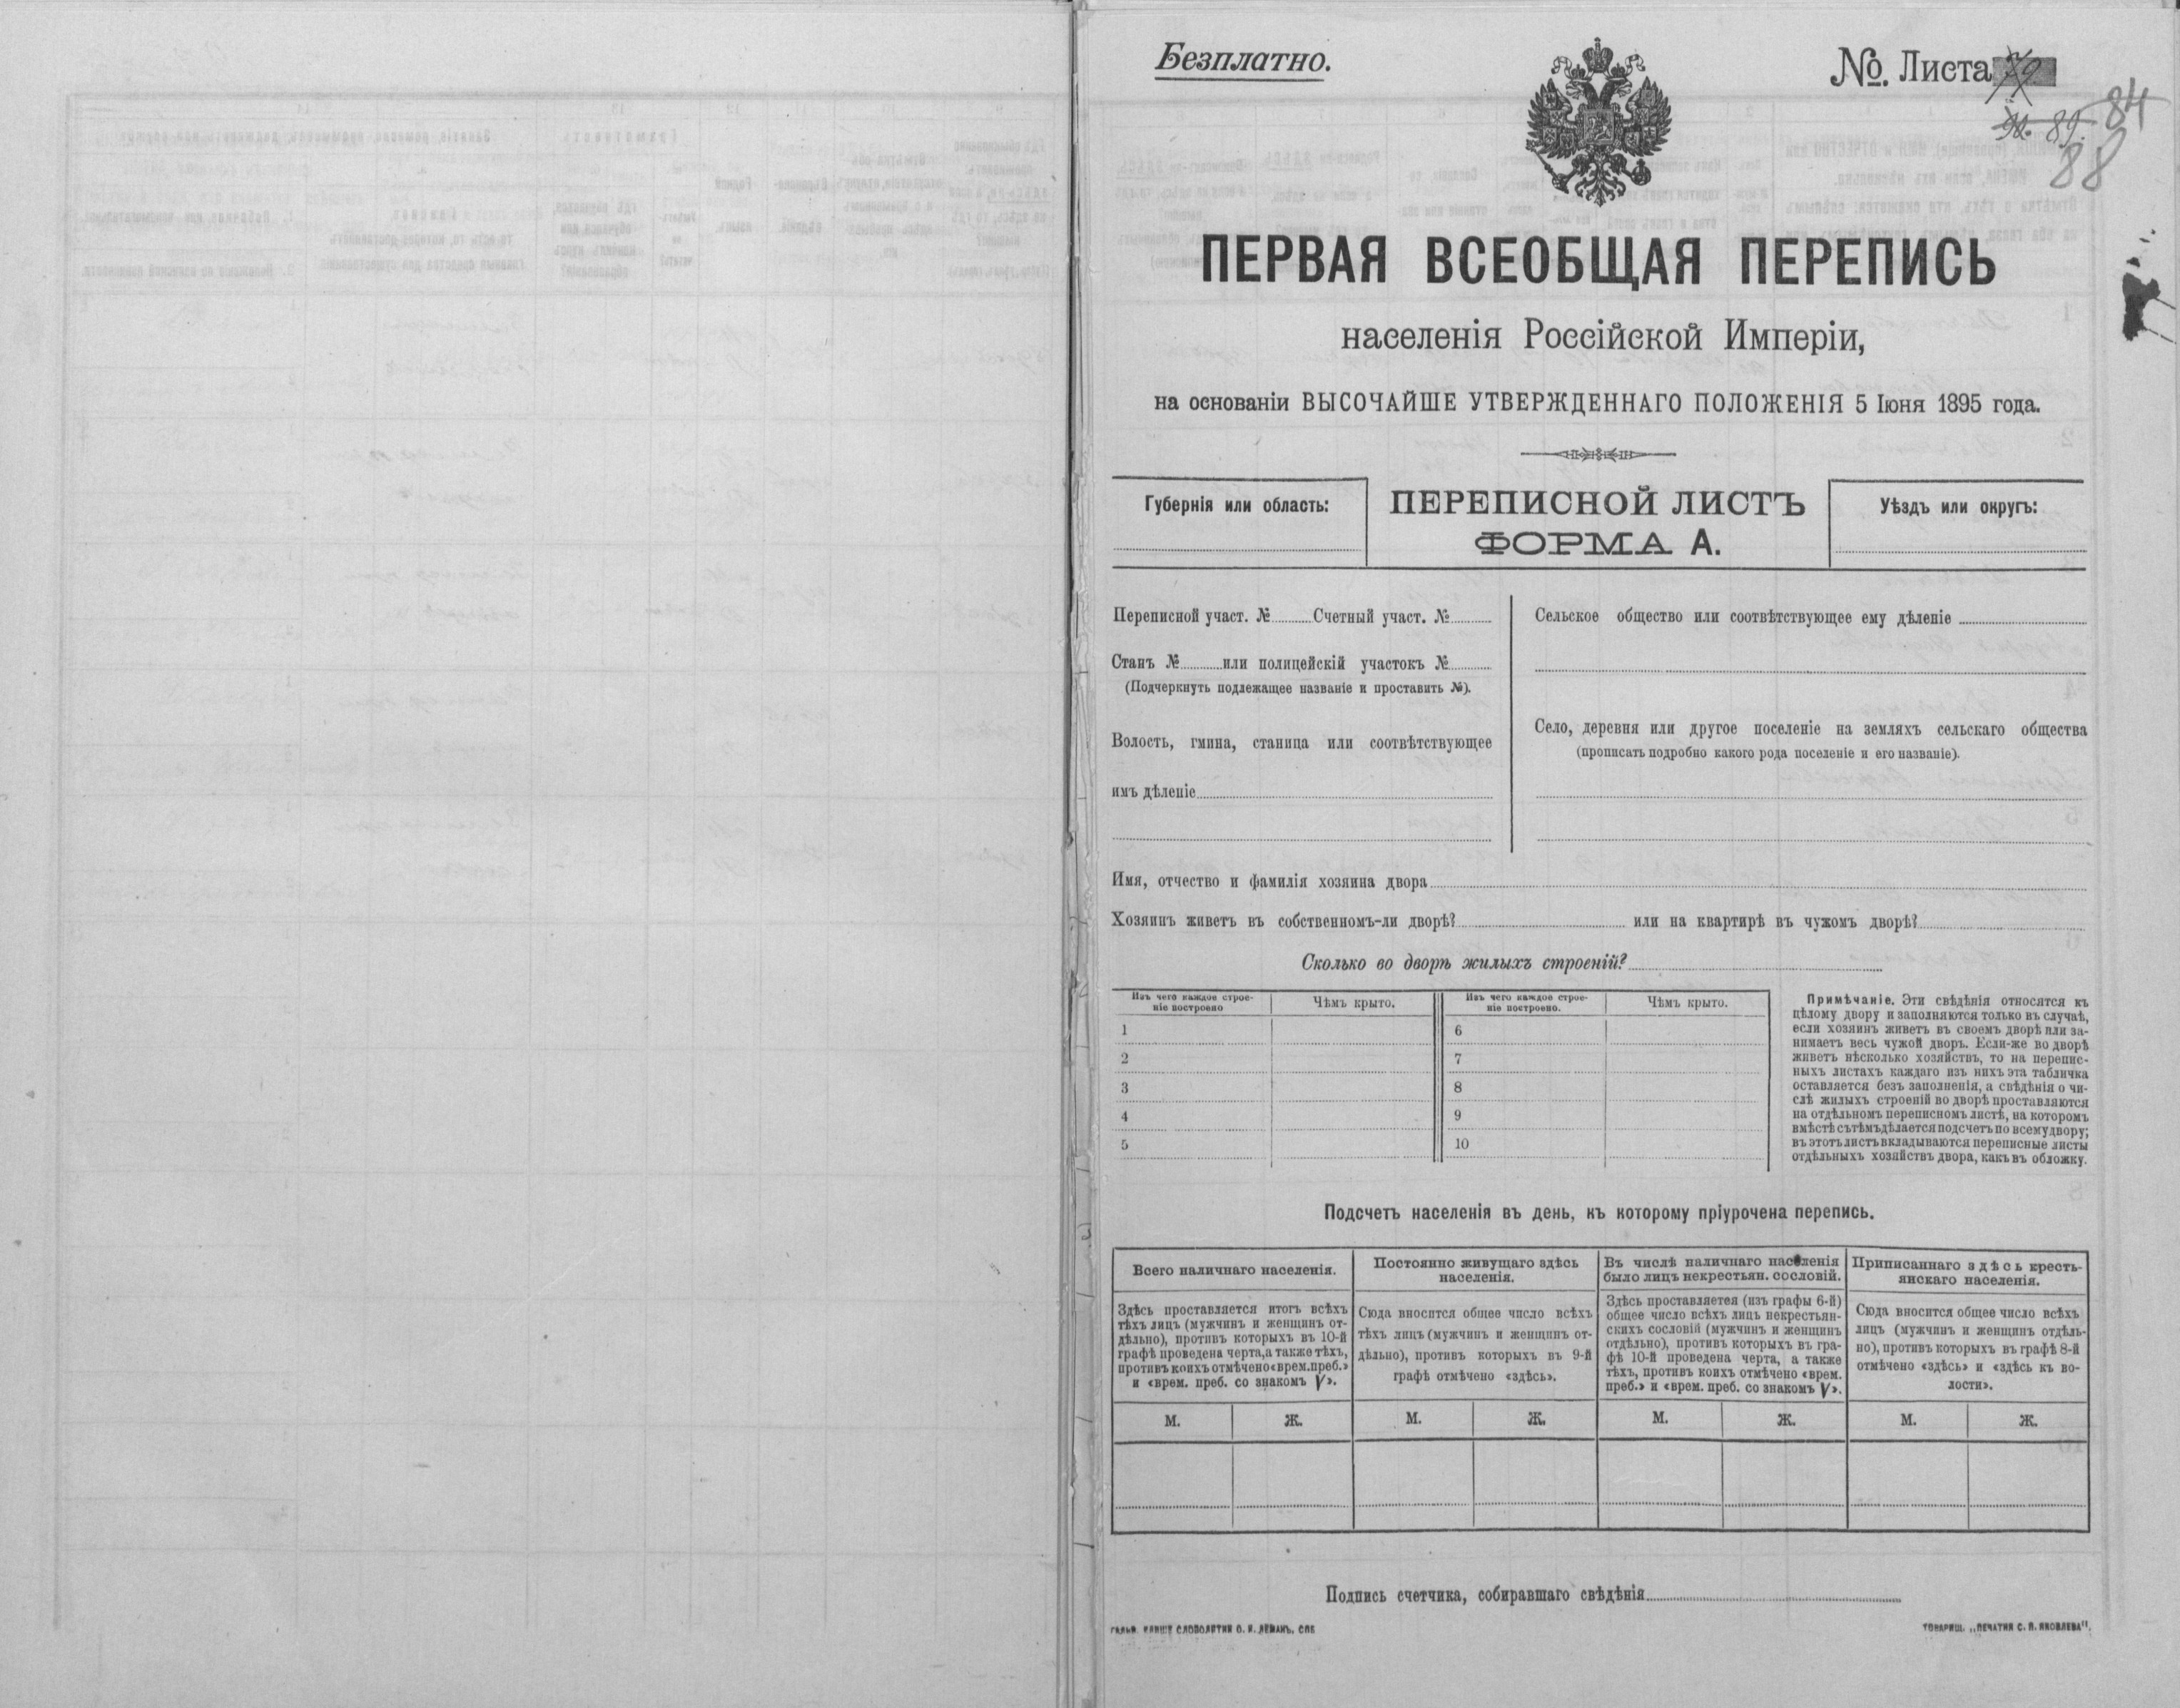 Безплатно.
№. Листа 79
90. 89. 84
88
ПЕРВАЯ ВСЕОБЩАЯ ПЕРЕПИСЬ
населенія Россійской Имперіи,
на основаніи ВЫСОЧАЙШЕ УТВЕРЖДЕННАГО ПОЛОЖЕНІЯ 5 Іюня 1895 года.
Губернія или область:
ПЕРЕПИСНОЙ ЛИСТЪ
ФОРМА А.
Уѣздъ или округъ:
Переписной участ. № Счетный участ. №
Станъ № или полицейскій участокъ №
(Подчеркнуть подлежащее названіе и проставить №).
Волость, гмина, станица или соотвѣтствующее
имъ дѣленіе
Сельское общество или соотвѣтствующее ему дѣленіе
Село, деревня или другое поселеніе на земляхъ сельскаго общества
(прописать подробно какого рода поселеніе и его названіе).
Имя, отчество и фамилія хозяина двора
Хозяинъ живетъ въ собственномъ-ли дворѣ? или на квартирѣ въ чужомъ дворѣ?
Сколько во дворѣ жилыхъ строеній?
Изъ чего каждое строе-
ніе построено
Чѣмъ крыто.
Изъ чего каждое строе-
ніе построено.
Чѣмъ крыто.
1 6
2 7
3 8
4 9
5 10
Примѣчаніе. Эти свѣдѣнія относятся къ
цѣлому двору и заполняются только въ случаѣ,
если хозяинъ живетъ въ своемъ дворѣ или за-
нимаетъ весь чужой дворъ. Если-же во дворѣ
живетъ нѣсколько хозяйствъ, то на перепис-
ныхъ листахъ каждаго изъ нихъ эта табличка
оставляется безъ заполненія, а свѣдѣнія о чи-
слѣ жилыхъ строеній во дворѣ проставляются
на отдѣльномъ переписномъ листѣ, на которомъ
вмѣстѣ съ тѣмъ дѣлается подсчетъ по всему двору;
въ этотъ листъ вкладываются переписные листы
отдѣльныхъ хозяйствъ двора, какъ въ обложку.
Подсчетъ населенія въ день, къ которому пріурочена перепись.
Всего наличнаго населенія.
Здѣсь проставляется итогъ всѣхъ
тѣхъ лицъ (мужчинъ и женщинъ от-
дѣльно), противъ которыхъ въ 10-й
графѣ проведена черта, а также тѣхъ,
противъ коихъ отмѣчено «врем. преб.»
и «врем. преб. со знакомъ V».
М. Ж.
Постоянно живущаго здѣсь
населенія.
Сюда вносится общее число всѣхъ
тѣхъ лицъ (мужчинъ и женщинъ от-
дѣльно), противъ которыхъ въ 9-й
графѣ отмѣчено «здѣсь».
М. Ж.
Въ числѣ наличнаго населенія
было лицъ некрестьян. сословій.
Здѣсь проставляется (изъ графы 6-й)
общее число всѣхъ лицъ некрестьян-
скихъ сословій (мужчинъ и женщинъ
отдѣльно), противъ которыхъ въ гра-
фѣ 10-й проведена черта, а также
тѣхъ, противъ коихъ отмѣчено «врем.
преб.» и «врем. преб. со знакомъ V».
М. Ж.
Приписаннаго здѣсь кресть-
янскаго населенія.
Сюда вносится общее число всѣхъ
лицъ (мужчинъ и женщинъ отдѣль-
но), противъ которыхъ въ графѣ 8-й
отмѣчено «здѣсь» и «здѣсь къ во-
лости».
М. Ж.
Подпись счетчика, собиравшаго свѣдѣнія
СЛОВОЛИТНИ О. И. ЛЕМАНЪ, СПБ
ТОВАРИЩ. „ПЕЧАТНЯ С. П. ЯКОВЛЕВА".